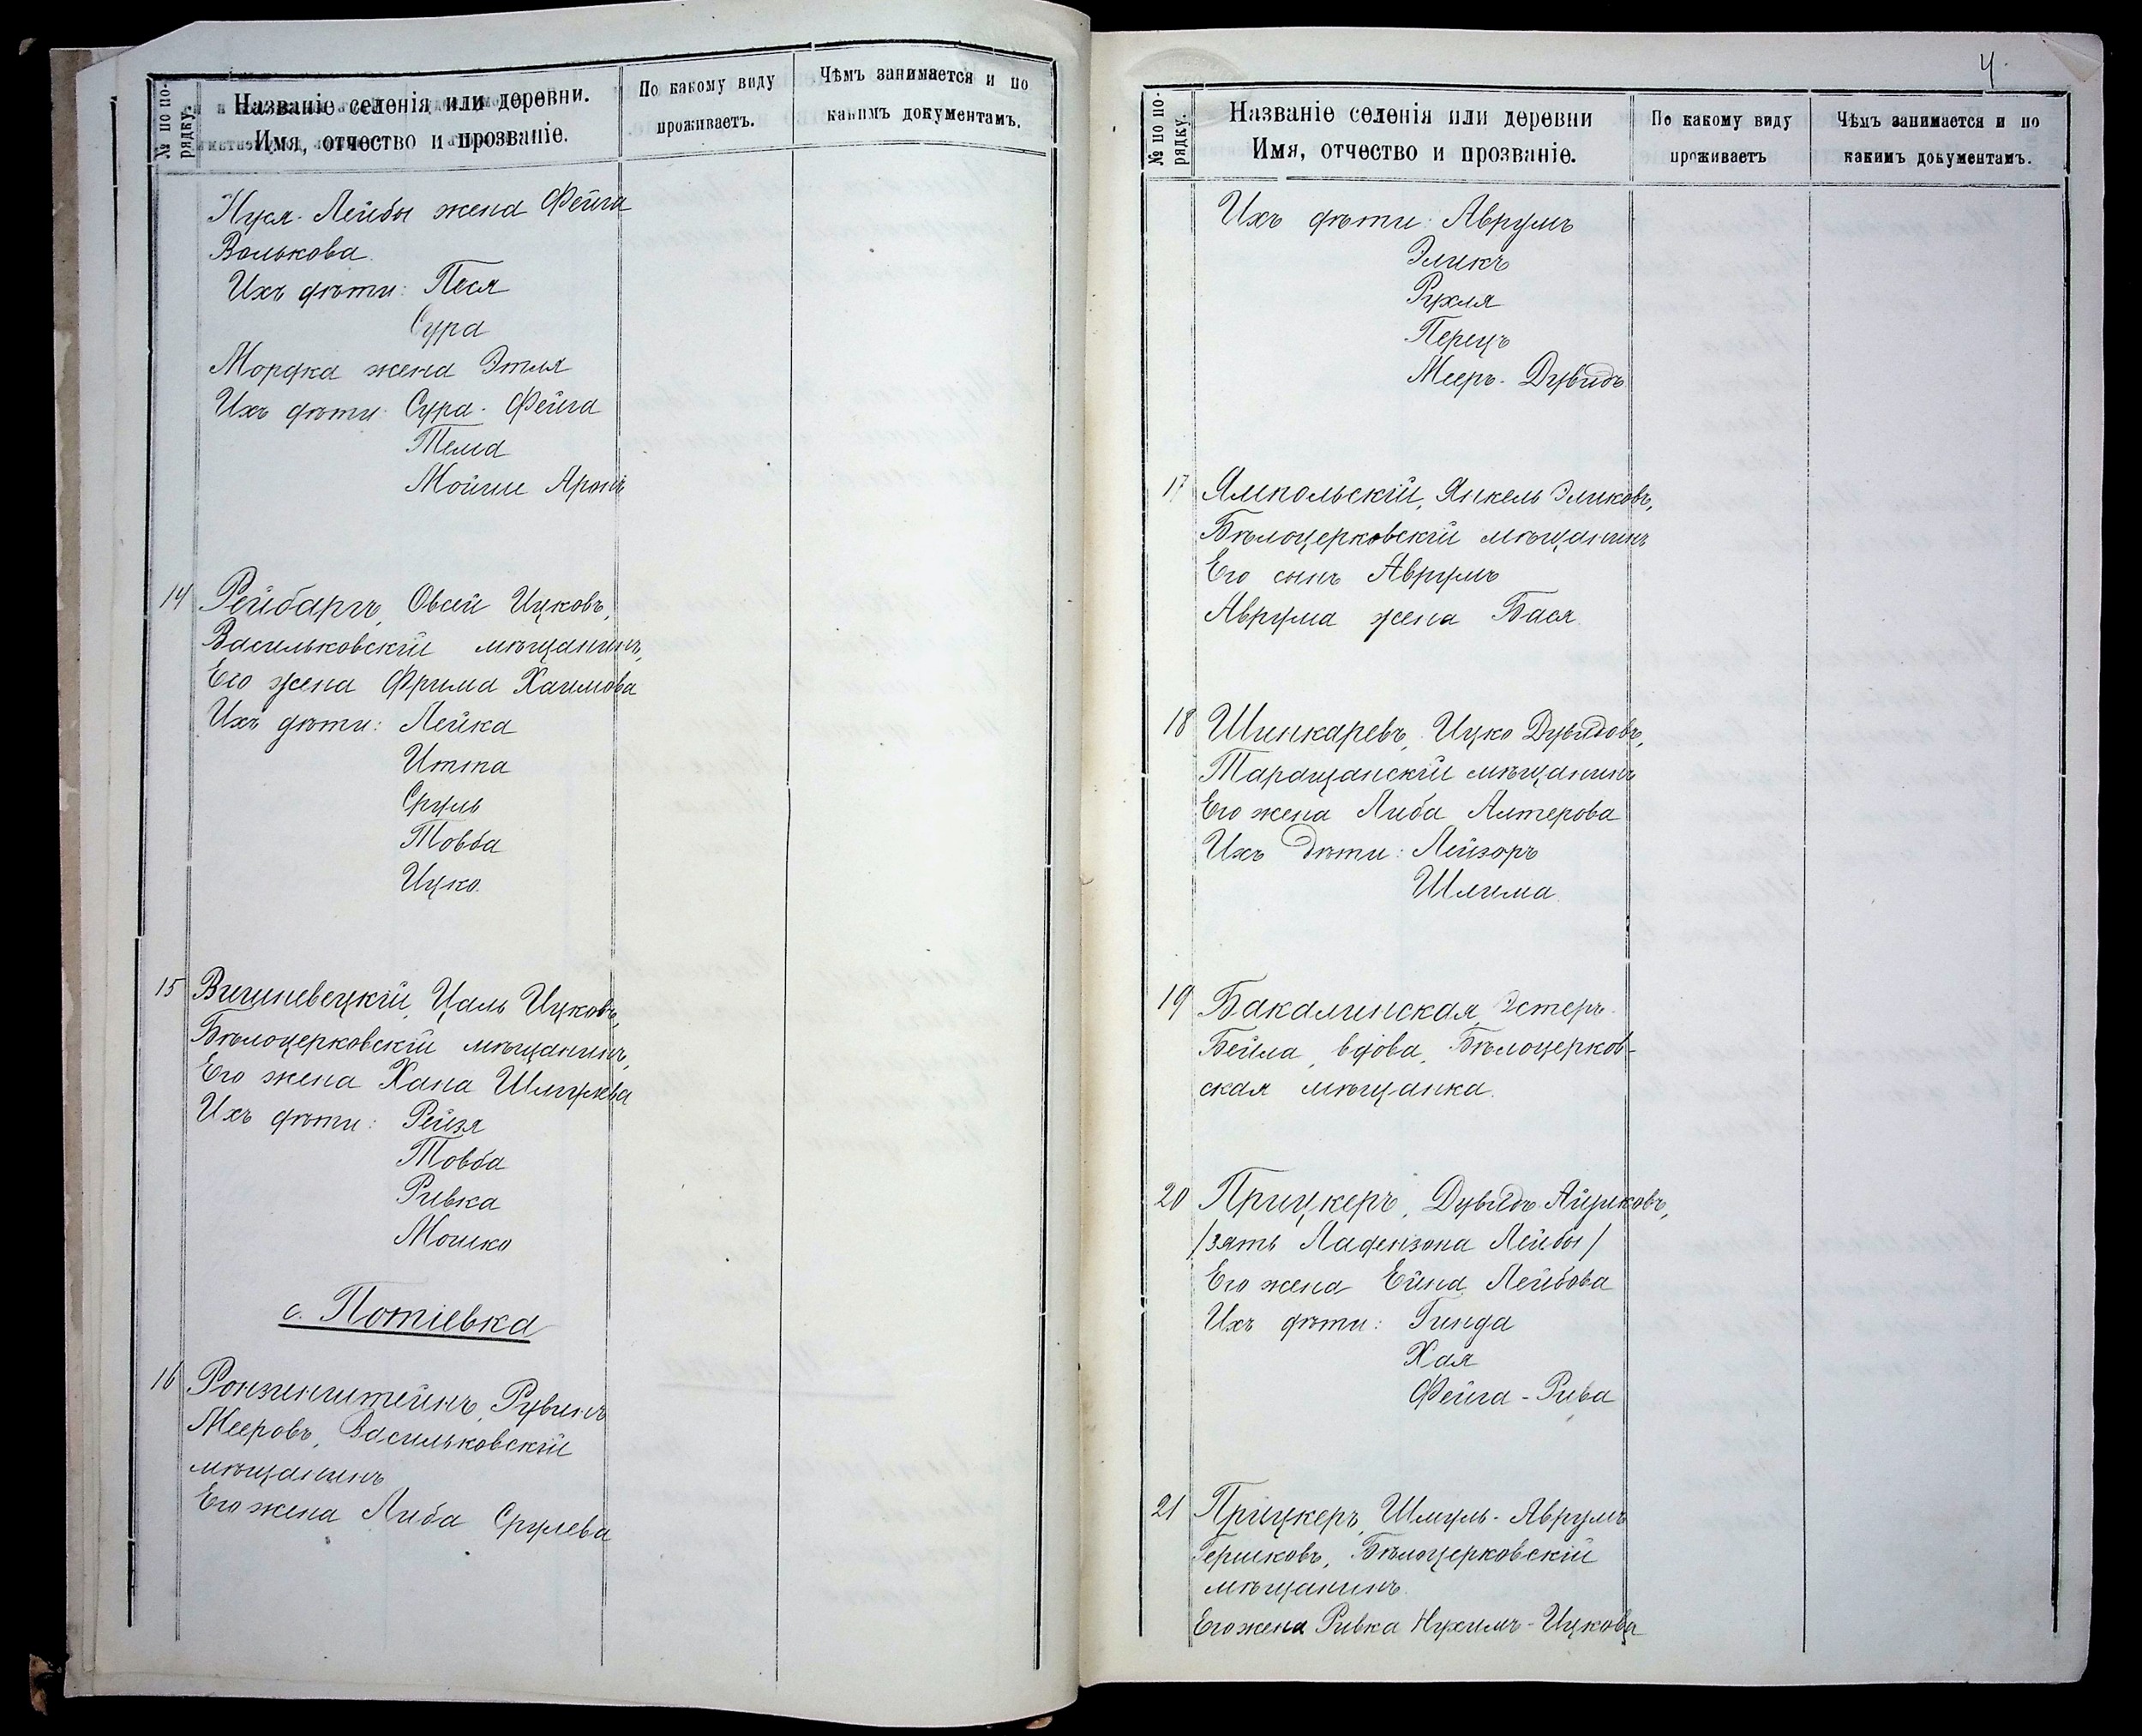 № по по-
рядку.
Названіе селенія или деревни.
Имя, отчество и прозваніе.
По какому виду
проживаетъ.
Чѣмъ занимается и по
какимъ документамъ.
Нуся-Лейбы жена Фейга
Волькова.
Ихъ дѣти: Песя
Сура
Мордка жена Этля
Ихъ дѣти: Сура-Фейга
Тема
Мойше Аронъ
14 Рейбаргъ, Овсей Ицковъ,
Васильковскій мѣщанинъ,
Его жена Фрима Хаимова
Ихъ дѣти: Лейка
Итта
Сруль
Товба
Ицко.
15 Вишневецкій, Цаль Ицковъ,
Бѣлоцерковскій мѣщанинъ,
Его жена Хана Шмулева
Ихъ дѣти: Рейзя
Товба
Ривка
Мошко
с. Потіевка
16 Ронзинштейнъ, Рувинъ
Мееровъ, Васильковскій
мѣщанинъ
Его жена Либа Срулева
4.
№ по по-
рядку.
Названіе селенія или деревни
Имя, отчество и прозваніе.
По какому виду
проживаетъ
Чѣмъ занимается и по
какимъ документамъ.
Ихъ дѣти: Аврумъ
Эликъ
Рухля
Перецъ
Мееръ-Дувидъ
17 Ямпольскій, Янкель Эликовъ,
Бѣлоцерковскій мѣщанинъ
Его сынъ Аврумъ
Аврума жена Бася
18 Шинкаревъ, Ицко Дувидовъ,
Таращанскій мѣщанинъ
Его жена Либа Алтерова
Ихъ дѣти: Лейзоръ
Шлима.
19 Бакалинская, Эстеръ-
Бейла, вдова, Бѣлоцерков-
ская мѣщанка.
20 Прицкеръ, Дувидъ Айзиковъ,
/зять Ладензона Лейбы/
Его жена Ейна Лейбова
Ихъ дѣти: Гинда
Хая
Фейга-Рива
21 Прицкеръ, Шмуль-Аврумъ
Гершковъ, Бѣлоцерковскій
мѣщанинъ.
Его жена Ривка Нухимъ-Ицкова